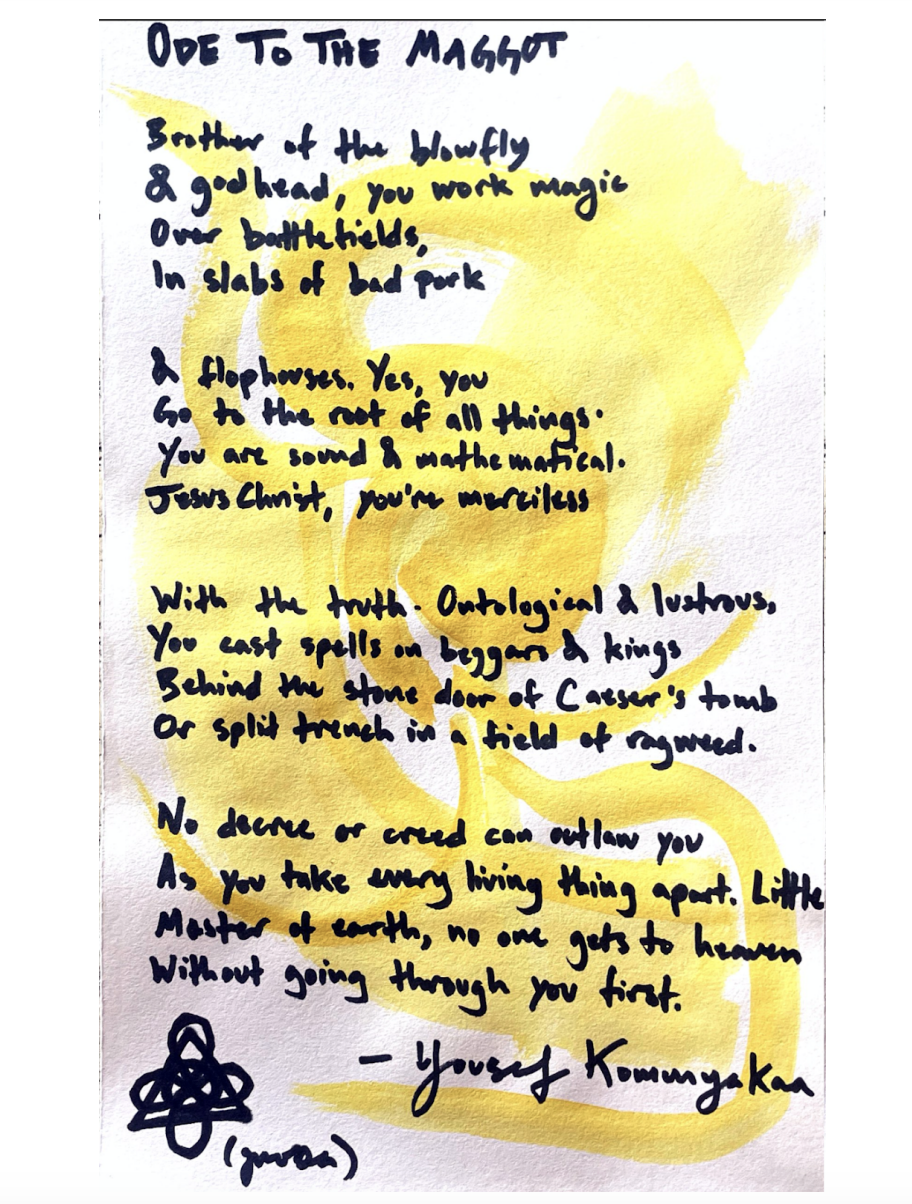 ODE TO THE MAGGOT
Brother of the blowfly
& godhead, you work magic
Over battlefields,
In slabs of bad pork
& flophouses. Yes, you
Go to the root of all things.
You are sound & mathematical.
Jesus Christ, you're merciless
With the truth. Ontological & lustrous,
You cast spells on beggars & kings
Behind the stone door of Caeser's tomb
Or split trench in a field of ragweed.
No decree or creed can outlaw you
As you take every living thing apart. Little
Master of earth, no one gets to heaven
Without going through you first.
– Yousef Kommyakaa